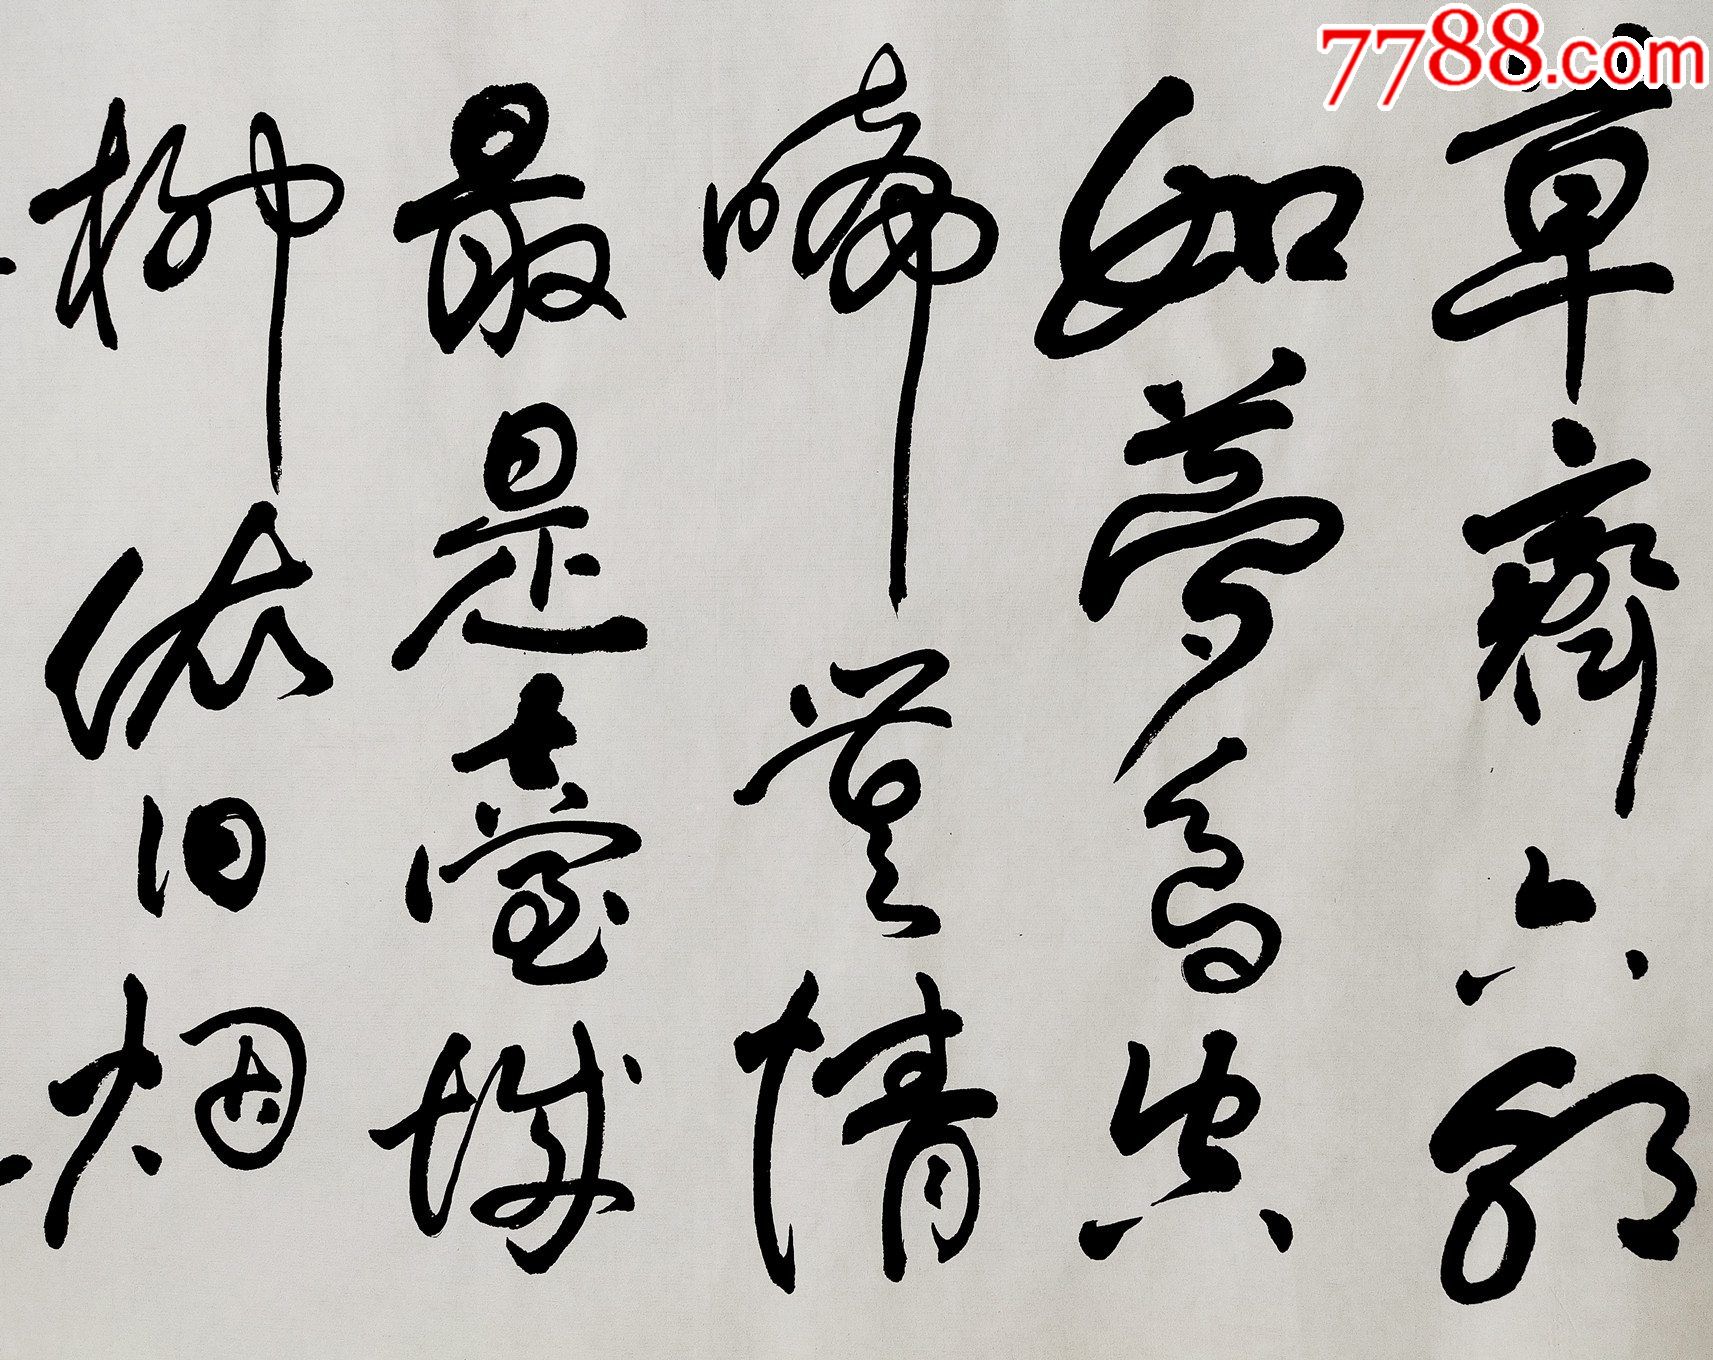 7788.com
草齊六朝
如夢鳥空
啼無情
最是臺城
柳依旧烟